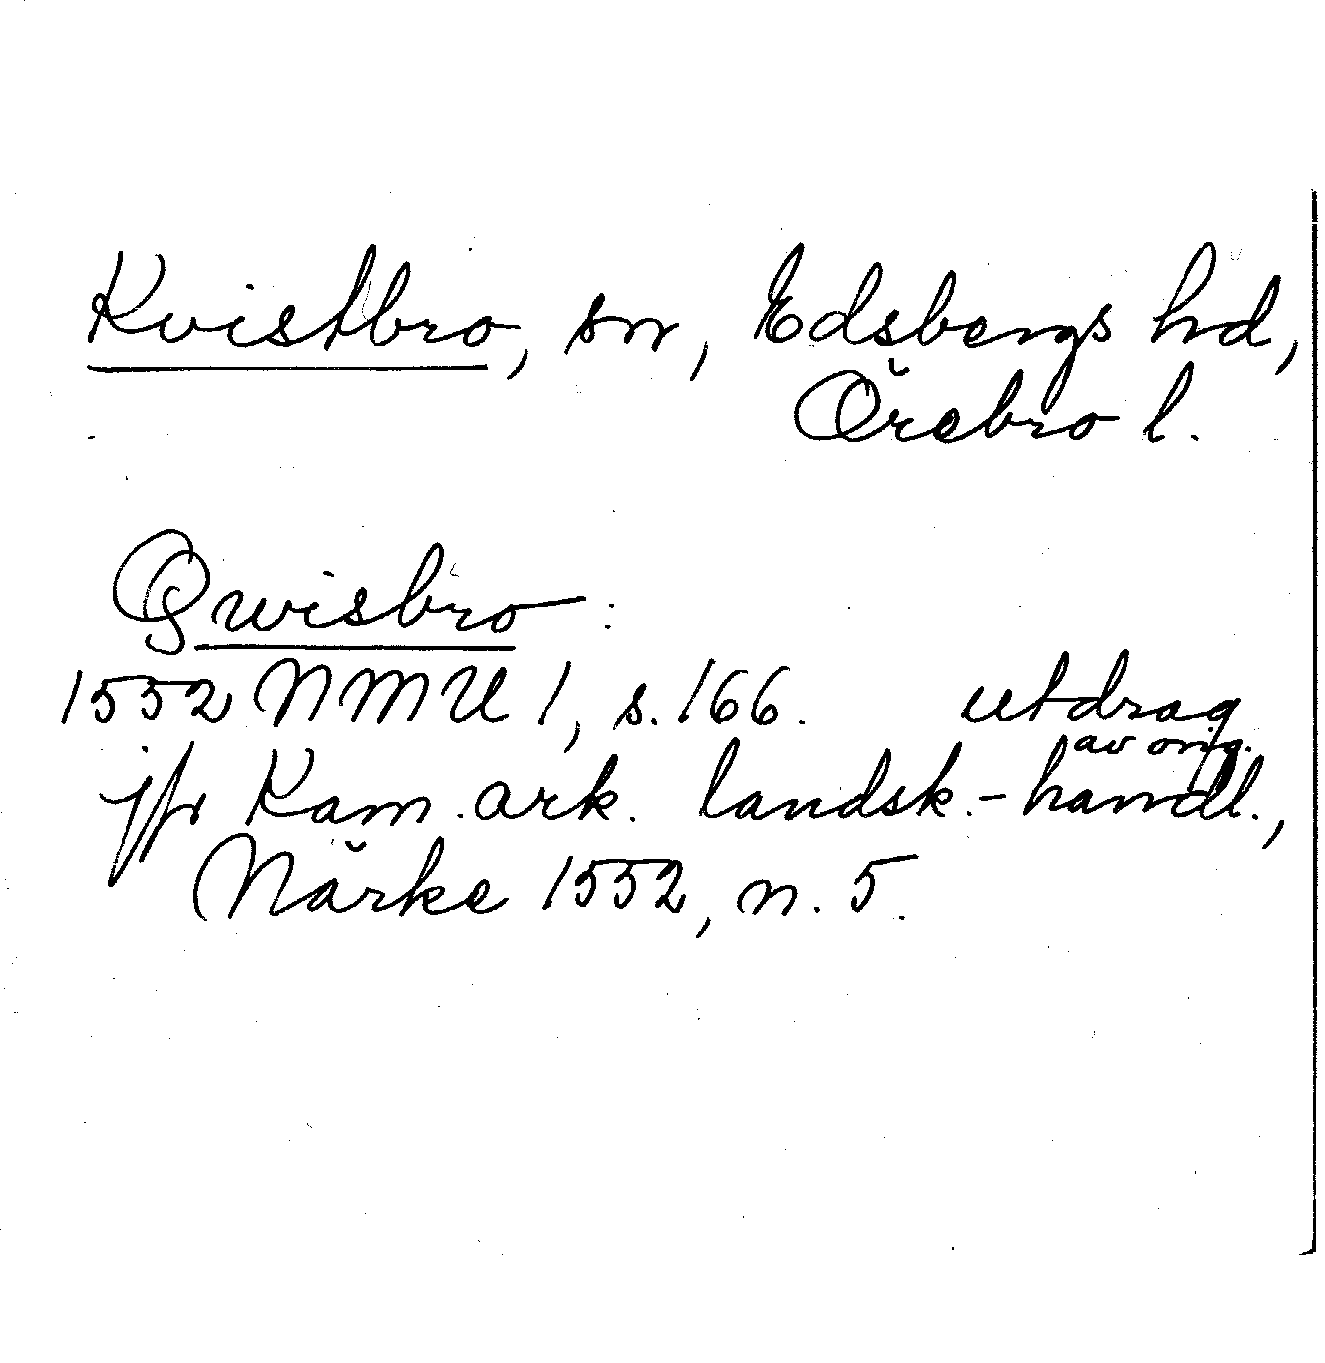 Kvistbro, sn, Edsbergs hd,
Örebro l.
Qwisbro:
1552 NMU 1, s. 166. utdrag
av orig.
jfr Kam. ark. landsk.-handl.,
Närke 1552, n. 5.